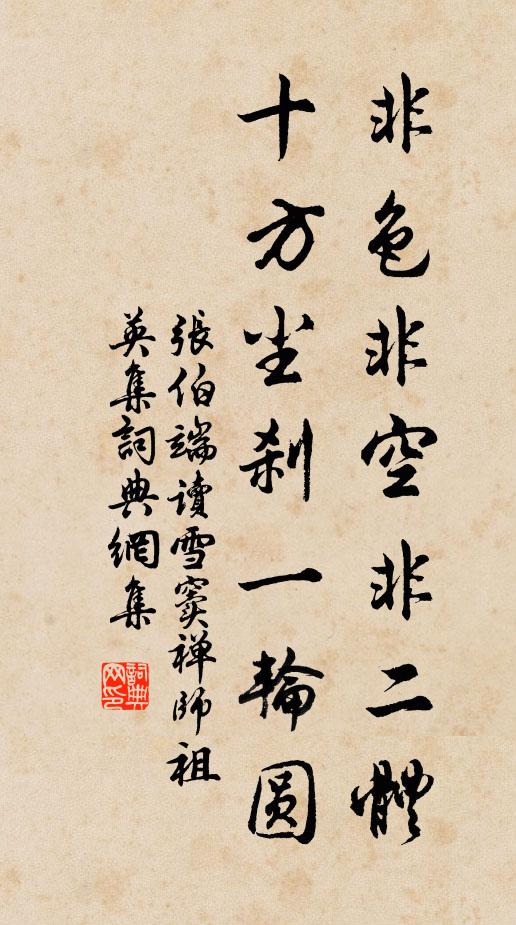 非色非空非二體
十方尘刹一輪圆
張伯端讀雪竇禅師祖
英集詞典網集
詞典网印